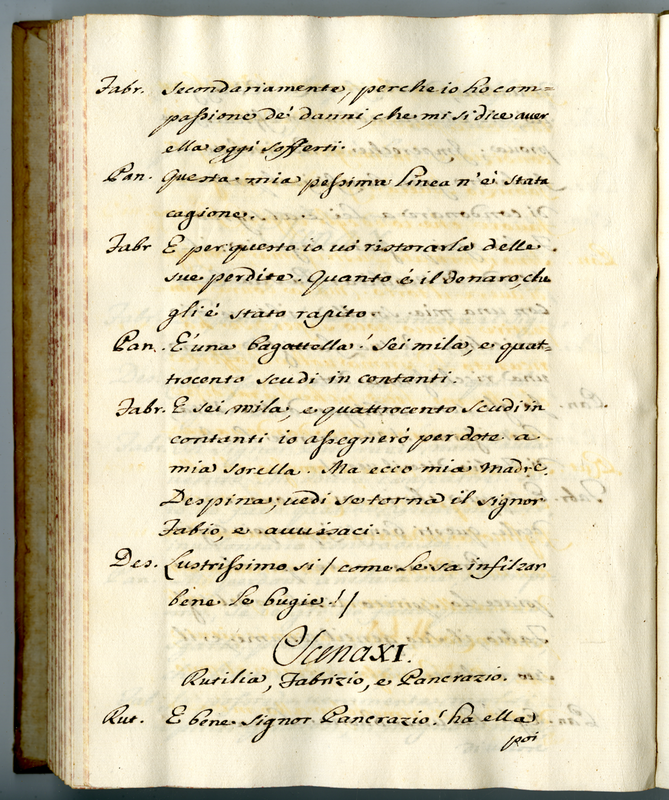 Fabr. Secondariamente, perche io ho com=
passione de' danni, che mi si dice aver
ella oggi sofferti.
Pan. Questa mia pessima linea n' è stata
cagione.
Fabr E per questo io vò ristorarla delle
sue perdite. Quanto è il donaro, che
gli è stato rapito.
Pan. E' una bagattella! Sei mila, e quat=
trocento scudi in contanti.
Fabr. E sei mila, e quattrocento scudi in
contanti io assegnerò per dote a
mia sorella. Ma ecco mia Madre.
Despina, vedi se torna il Signor
Fabio, e avvisaci.
Des. Lustrissimo si / come le sa infilzar
bene le bugie! /
Scena XI.
Rutilia, Fabrizio, e Pancrazio.
Rut. E bene Signor Pancrazio! ha ella
poi